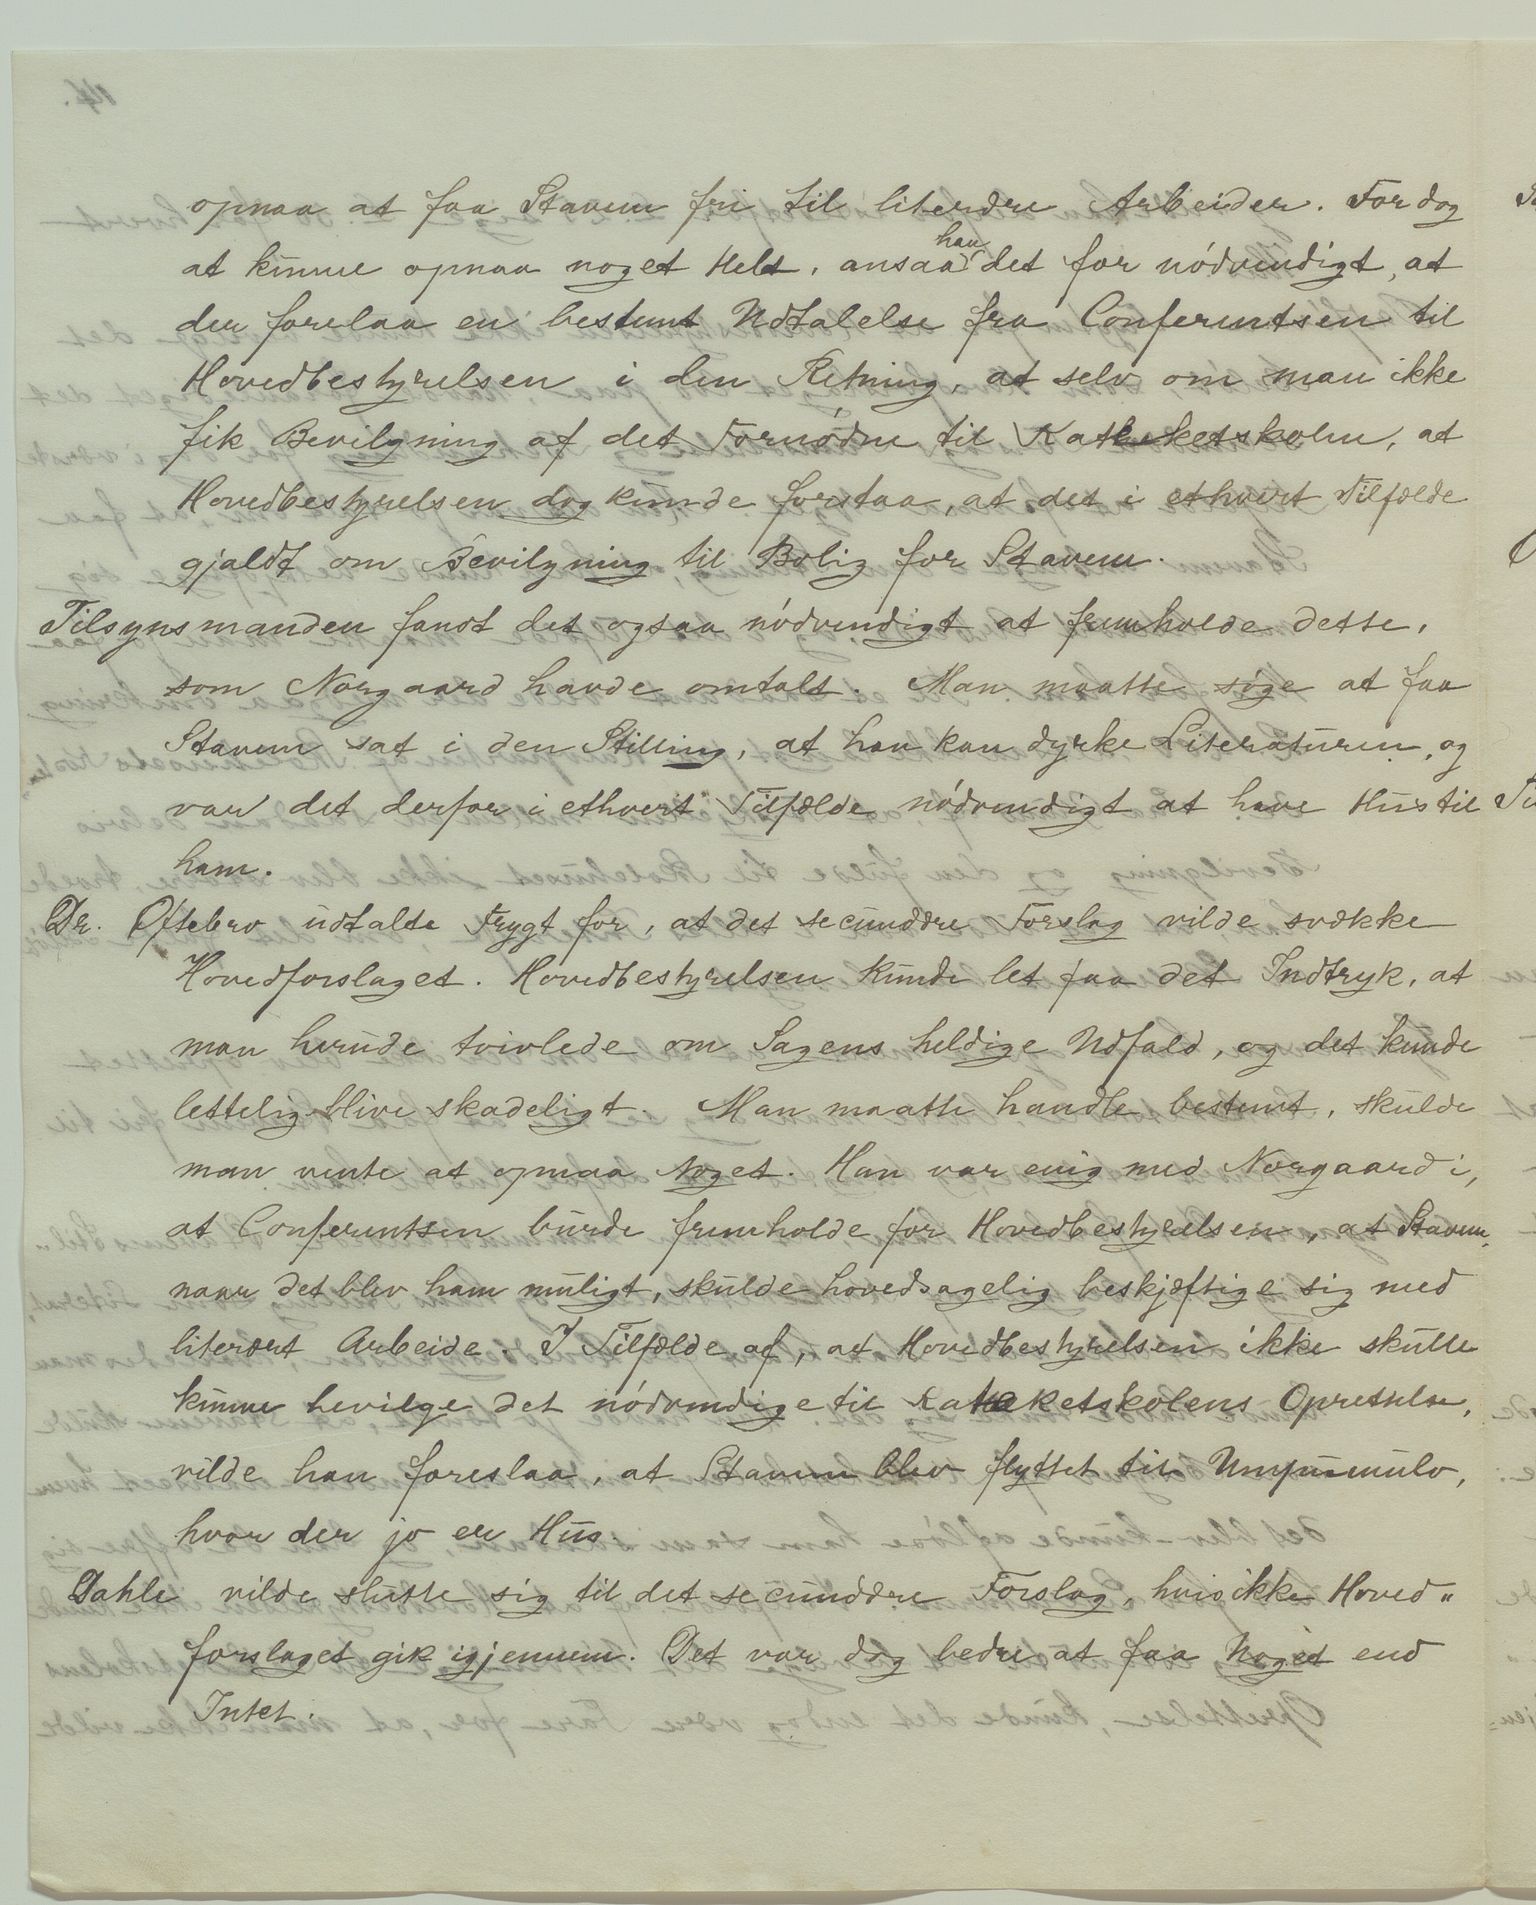 opnaa at faa Stavem fri til literære Arbeider. For dog
at kunne opnaa noget Helt, ansaa han det for nódvendigt, at
der forelaa en bestemt Udtalelse fra Conferentsen til
Hovedbestyrelsen i den Retning, at selv om man ikke
fik Bevilgning af det Fornódne til Kateketskolen, at
Hovedbestyrelsen dog kunde forstaa, at det i ethvert Tilfælde
gjaldt om Bevilgning til Bolig for Stavem.
Tilsynsmanden fandt det ogsaa nódvendigt at fremholde dette,
som Norgaard havde omtalt. Man maatte søge at faa
Stavem sat i den Stilling, at han kan dyrke Literaturen, og
var det derfor i ethvert Tilfælde nódvendigt at have Hus til
ham.
Dr. Oftebro udtalte Frygt for, at det secundære Forslag vilde svække
Hovedforslaget. Hovedbestyrelsen kunde let faa det Indtryk, at
man herude tvivlede om Sagens heldige Udfald, og det kunde
lettelig blive skadeligt. Man maatte handle bestemt, skulde
man vente at opnaa Noget. Han var enig med Norgaard i,
at Conferentsen burde fremholde for Hovedbestyrelsen, at Stavem,
naar det blev ham muligt, skulde hovedsagelig beskjæftige sig med
literært Arbeide. I Tilfælde af, at Hovedbestyrelsen ikke skulle
kunne bevilge det nódvendige til Kateketskolens Oprettelse,
vilde han foreslaa, at Stavem blev flyttet til Umpumulo,
hvor der jo er Hus.
Dahle vilde slutte sig til det secundære Forslag, hvis ikke Hoved„
forslaget gik igjennem. Det var dog bedre at faa Noget end
Intet.